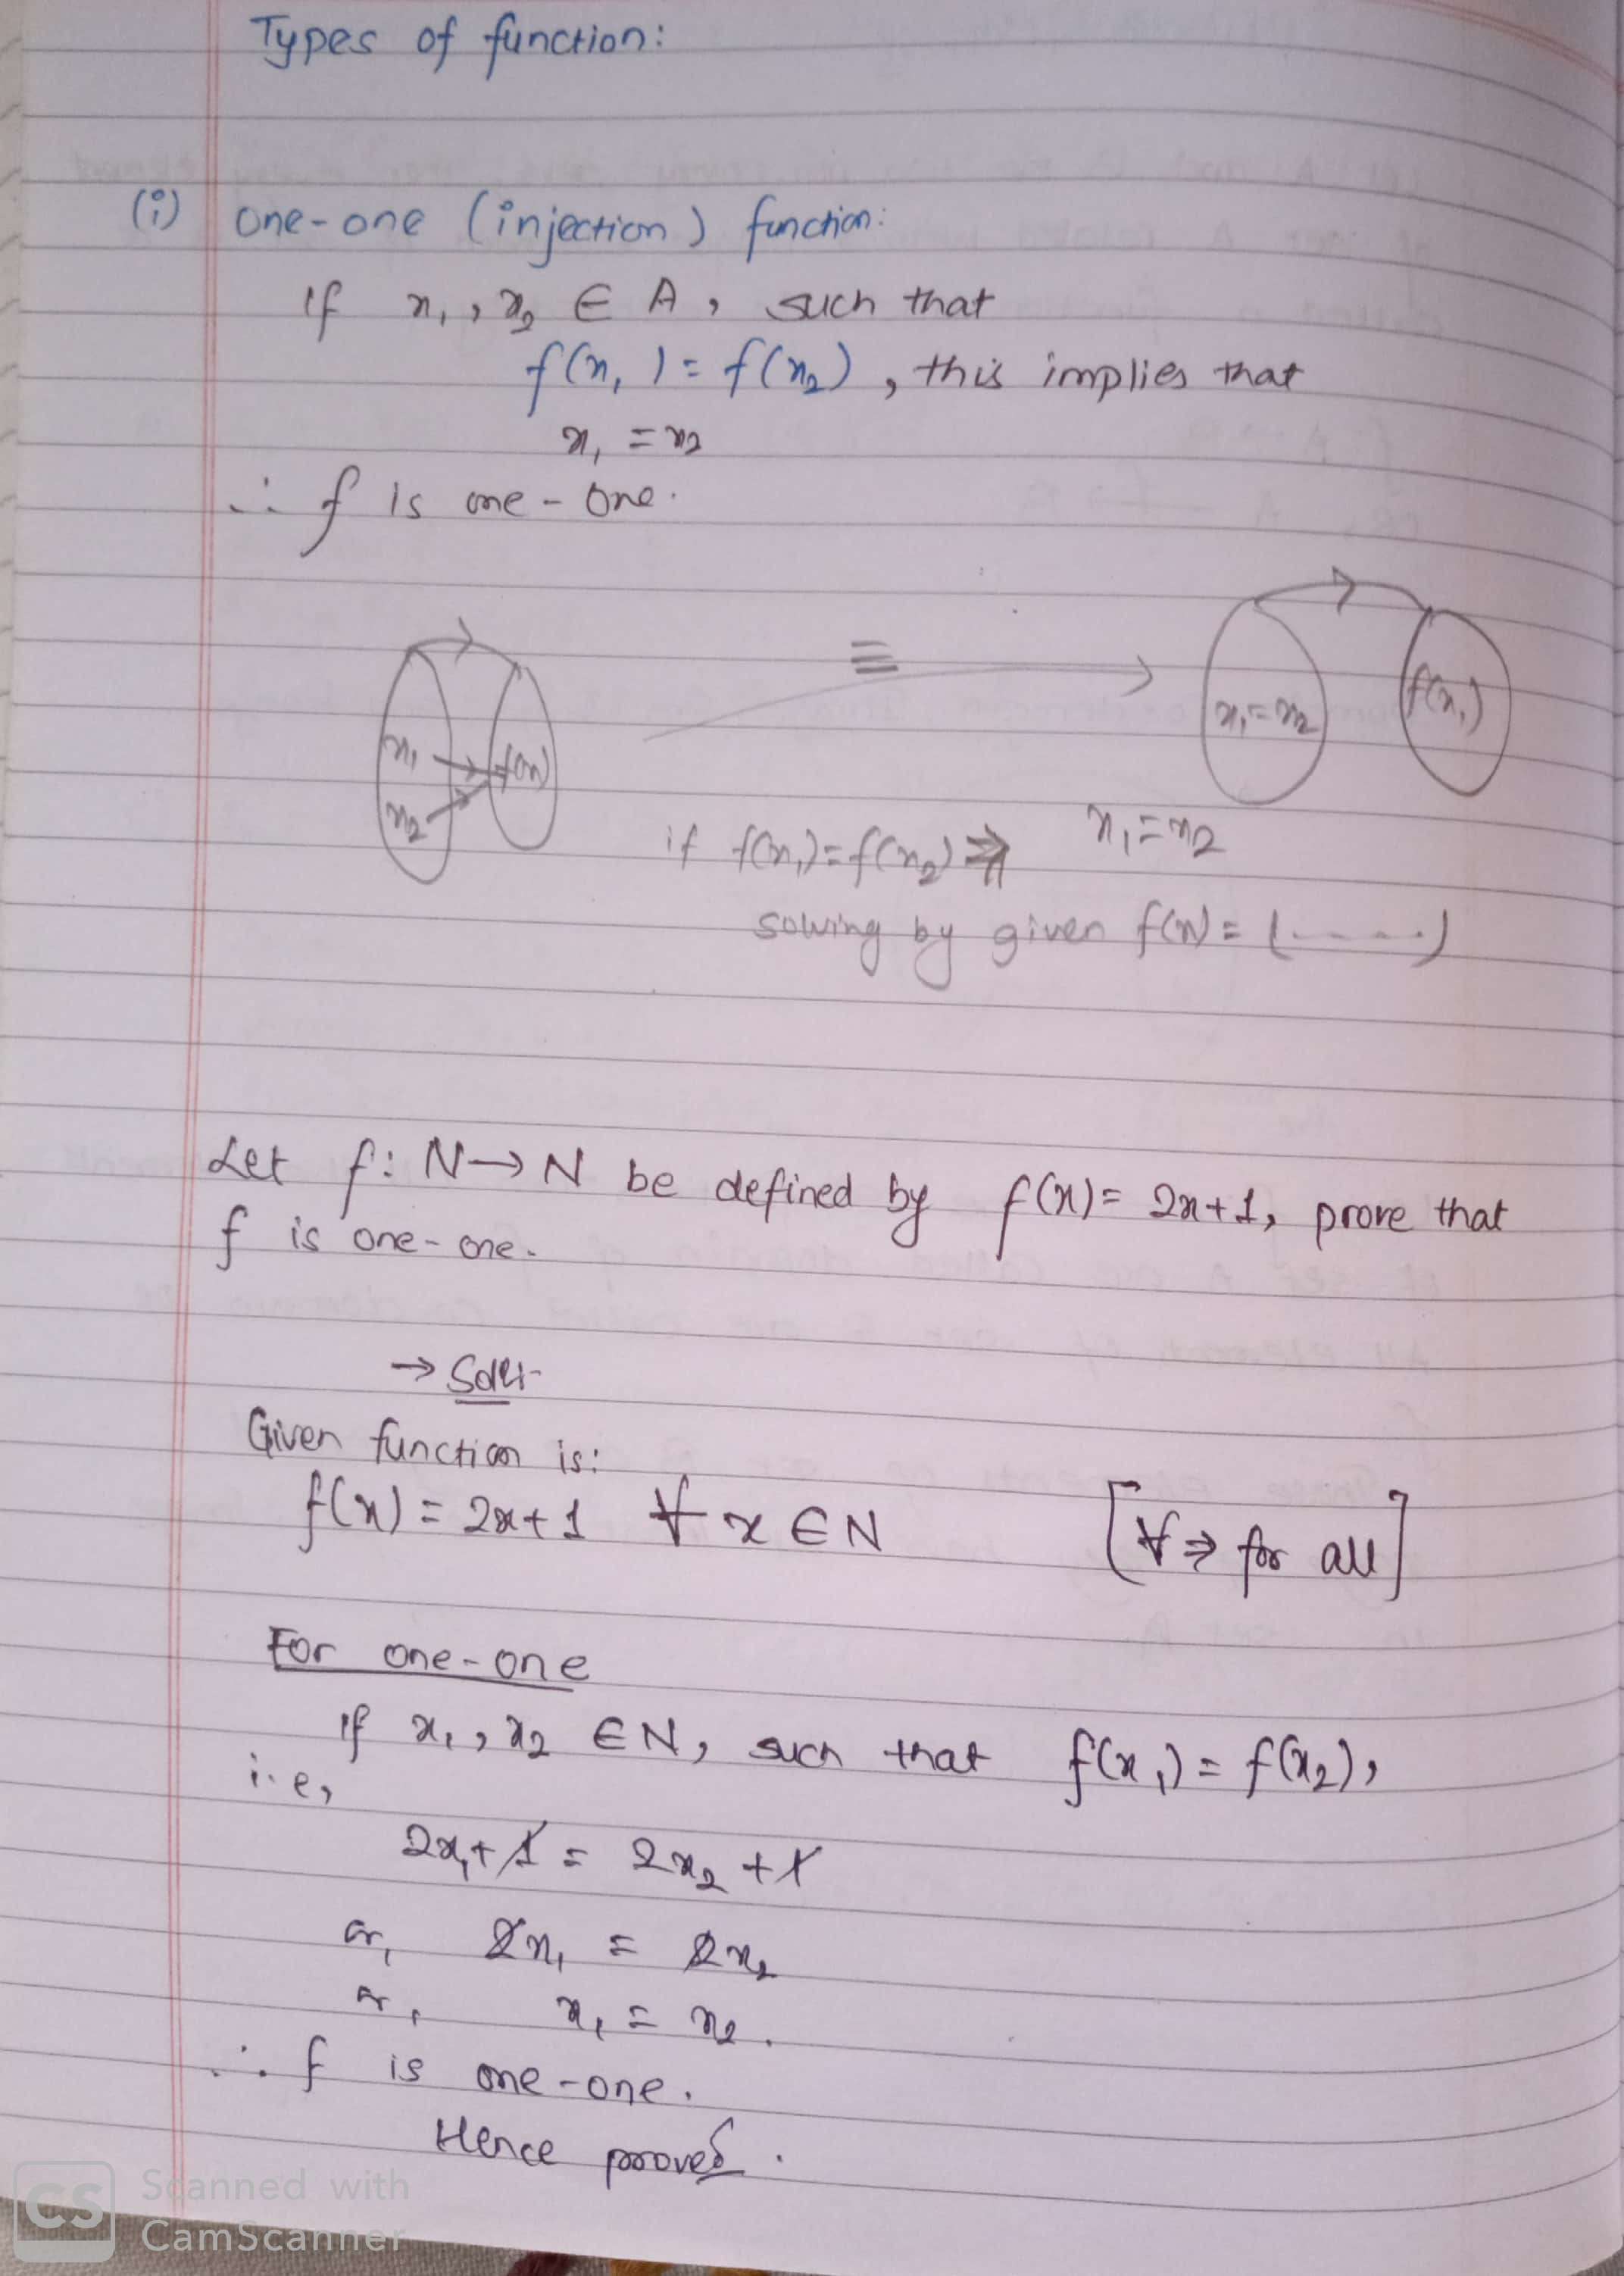 Types of function:
(i) one-one (injection) function:
If x₁, x₂ ∈ A, such that
f(x₁) = f(x₂), this implies that
x₁ = x₂
∴ f is one-one.
≡
x₁
x₂
f(x)
x₁=x₂
f(x₁)
if f(x₁)=f(x₂) ⇒ x₁=x₂
solving by given f(x) = (-----)
Let f: N→N be defined by f(x)= 2x+1, prove that
f is one-one.
→ Sol:-
Given function is:
f(x) = 2x+1 ∀ x ∈ N [∀ ⇒ for all]
For one-one
If x₁, x₂ ∈ N, such that f(x₁) = f(x₂),
i.e,
2x₁+1 = 2x₂+1
or, 2x₁ = 2x₂
or, x₁ = x₂.
∴ f is one-one.
Hence proved.
CS Scanned with
CamScanner